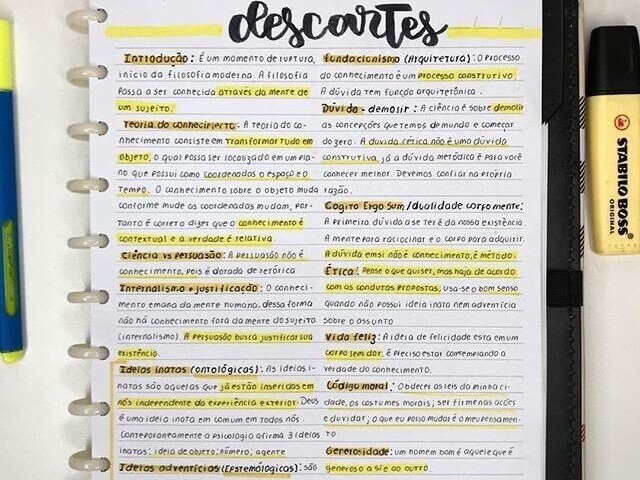 descartes
Introdução: É um momento de ruptura,
início da filosofia moderna. A filosofia
Passa a ser conhecida através da mente de
um sujeito.
Teoria do conhecimento: A teoria do co-
nhecimento consiste em transformar tudo em
objeto, o qual possa ser localizado em um pla-
no que possui como coordenadas o espaço e o
Tempo. O conhecimento sobre o objeto muda
conforme mude as coordenadas mudam, por-
tanto é correto dizer que o conhecimento é
contextual e a verdade é relativa.
Ciência vs persuasão: A persuasão não é
conhecimento, pois é dorada de retórica
Internalismo + justificação: O conheci-
mento emana da mente humana. dessa forma
não há conhecimento fora da mente do sujeito
(internalismo). A persuasão busca justificar sua
existência.
Ideias inatas (ontológicas): As ideias i-
natas são aquelas que já estão inseridas em
nós independente da experiência exterior. Deus
é uma ideia inata em comum em todos nós.
Contemporaneamente a psicologia afirma 3 ideias
inatas: ideia de objeto; número; agente
Ideias adventícias (Epistemológicas): são
Fundacionismo (Arquitetura): O processo
do conhecimento é um processo construtivo
A dúvida tem função arquitetônica.
Dúvida - demolir: A ciência é sobre demolir
as concepções que temos de mundo e começar
do zero. A dúvida cética não é uma dúvida
construtiva, já a dúvida metódica é para você
conhecer melhor. Devemos confiar na própria
razão.
Cogito Ergo Sum/dualidade corpo mente:
A primeira dúvida a se ter é da nossa existência.
A mente para raciocinar e o corpo para adquirir.
A dúvida em si não é conhecimento, é método.
Ética: Pense o que quiser, mas haja de acordo
com as condutas propostas, usa-se o bom senso
quando não possui ideia inata nem adventícia
sobre o assunto
Vida feliz: A ideia de felicidade esta em um
corpo sem dor. é preciso estar contemplando a
verdade do conhecimento.
Código moral: Obedecer as leis da minha ci-
dade, os costumes morais; ser firme nas acões
e duvidar; o que eu posso mudar é o meu pensamen-
to
Generosidade: um homem bom é aquele que é
generoso a si e ao outro.
STABILO BOSS
ORIGINAL